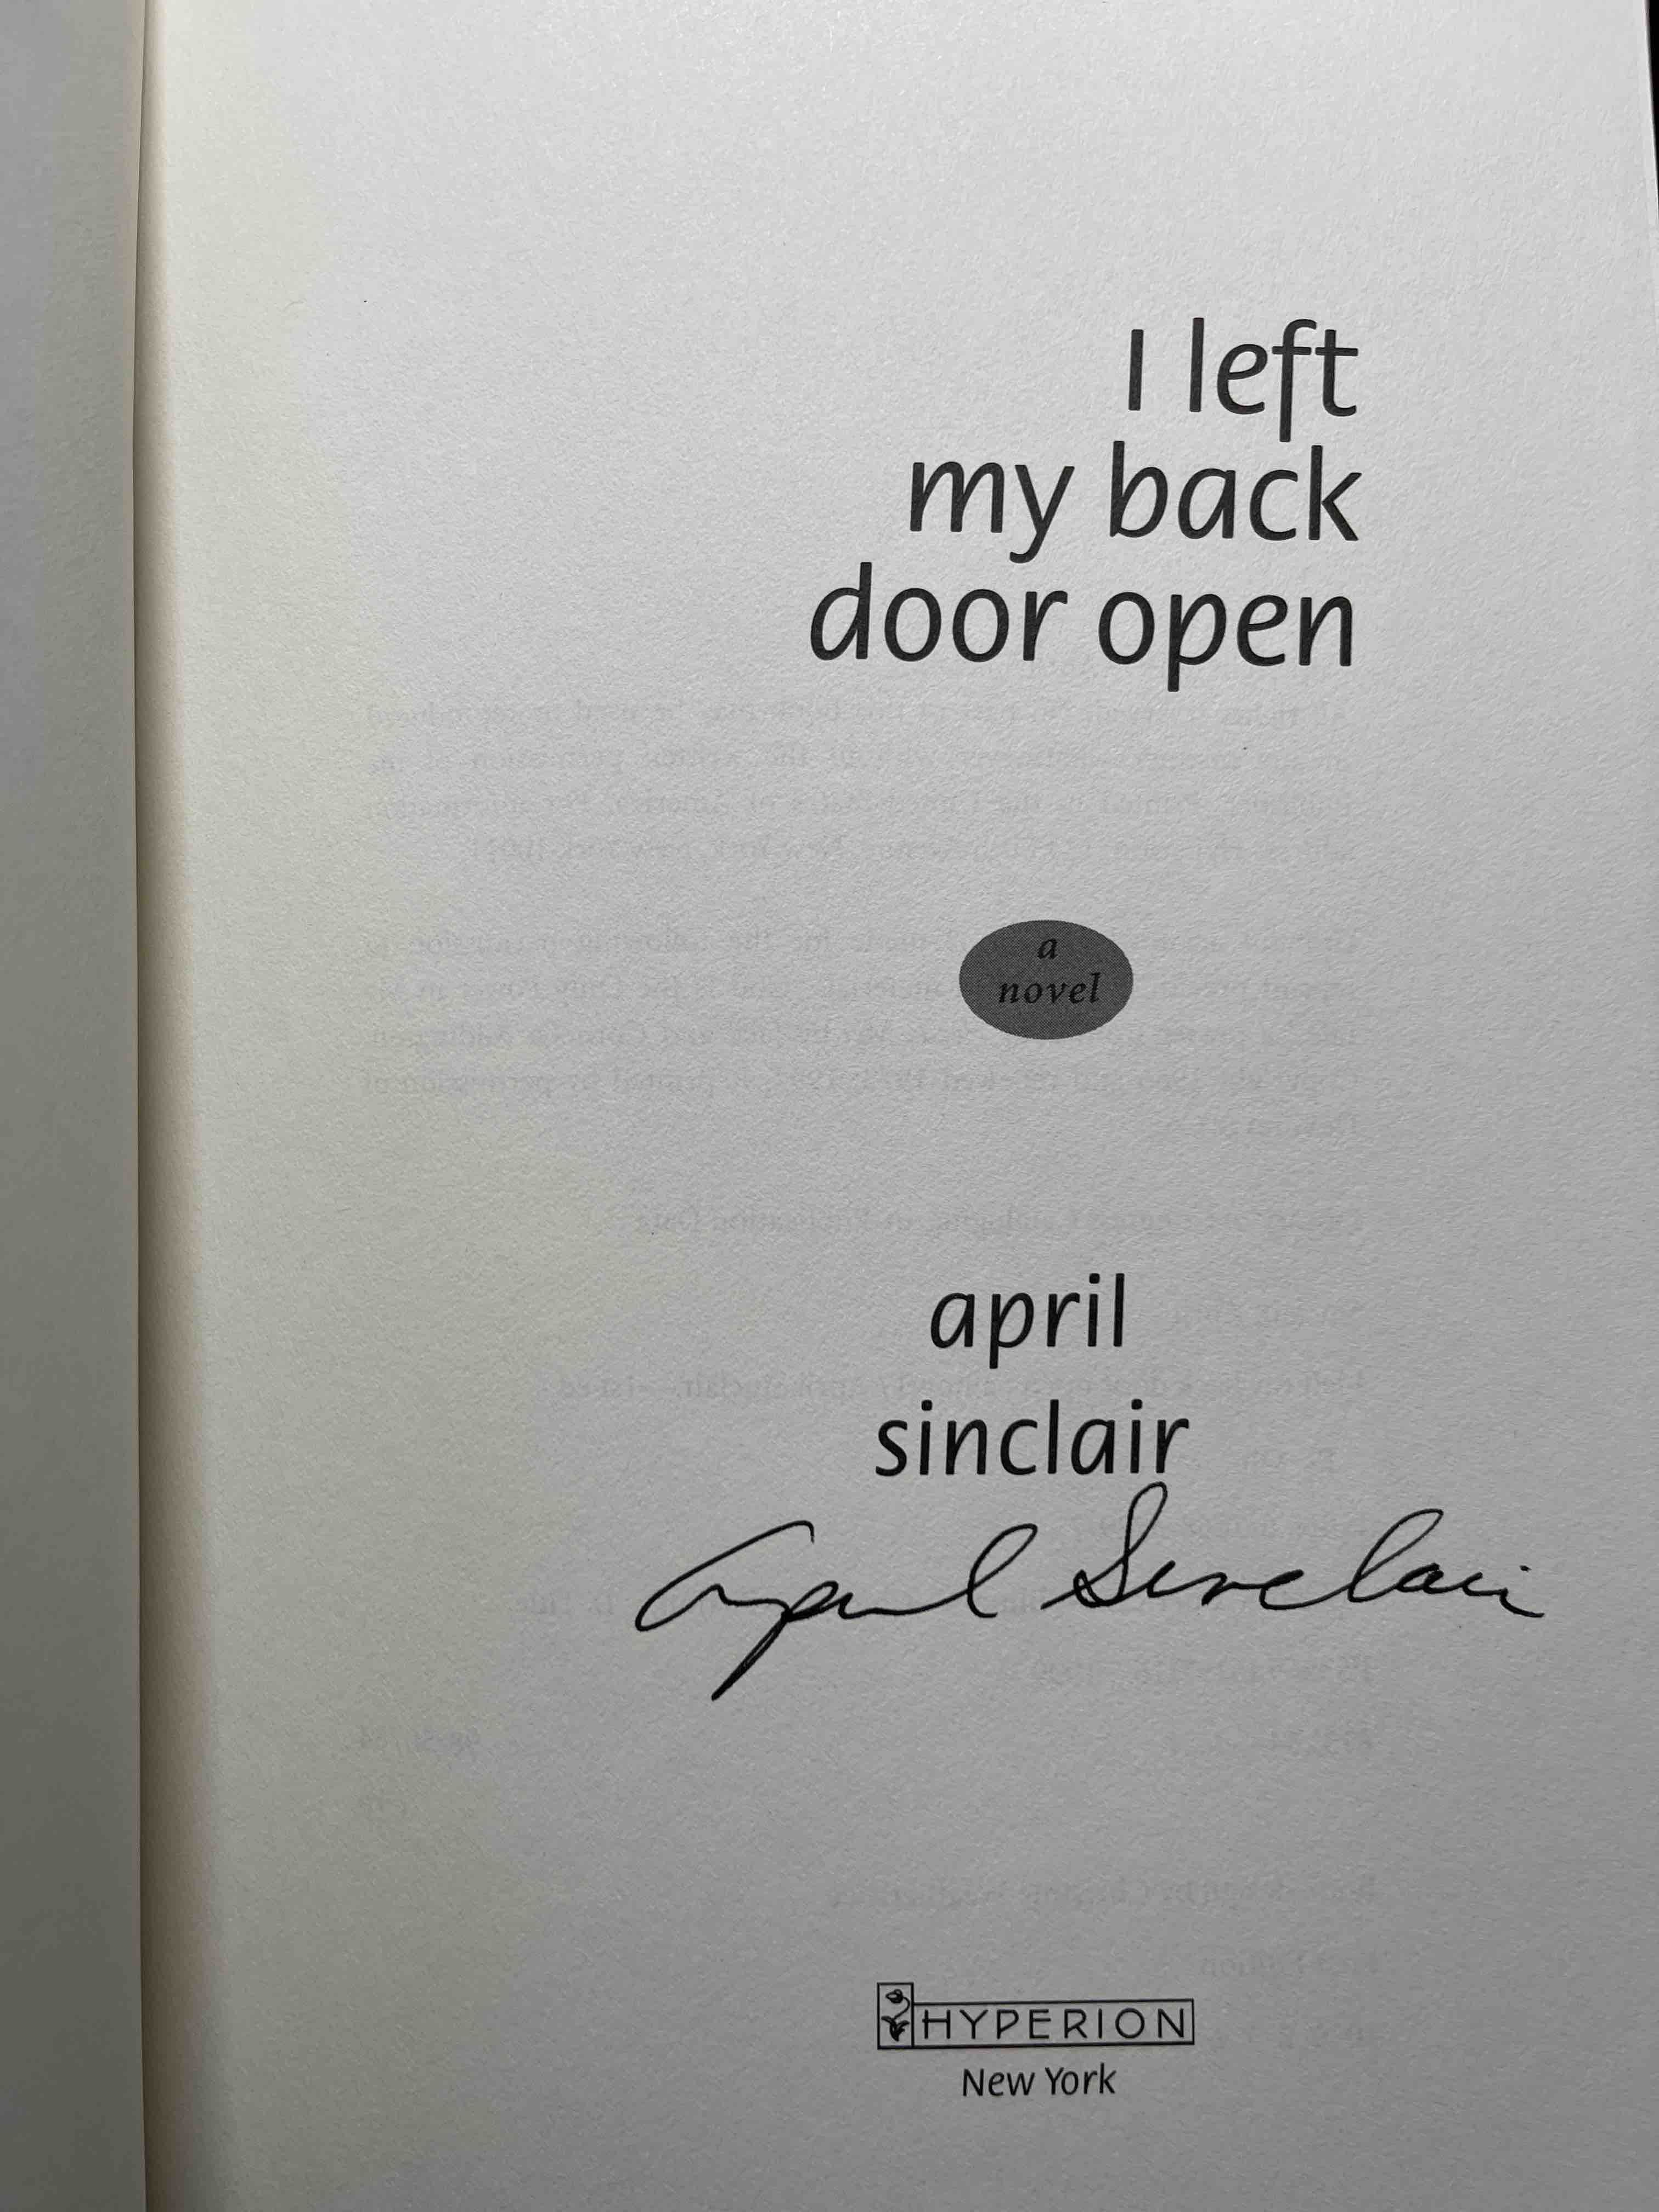 I left
my back
door open
a
novel
april
sinclair
April Sinclair
HYPERION
New York